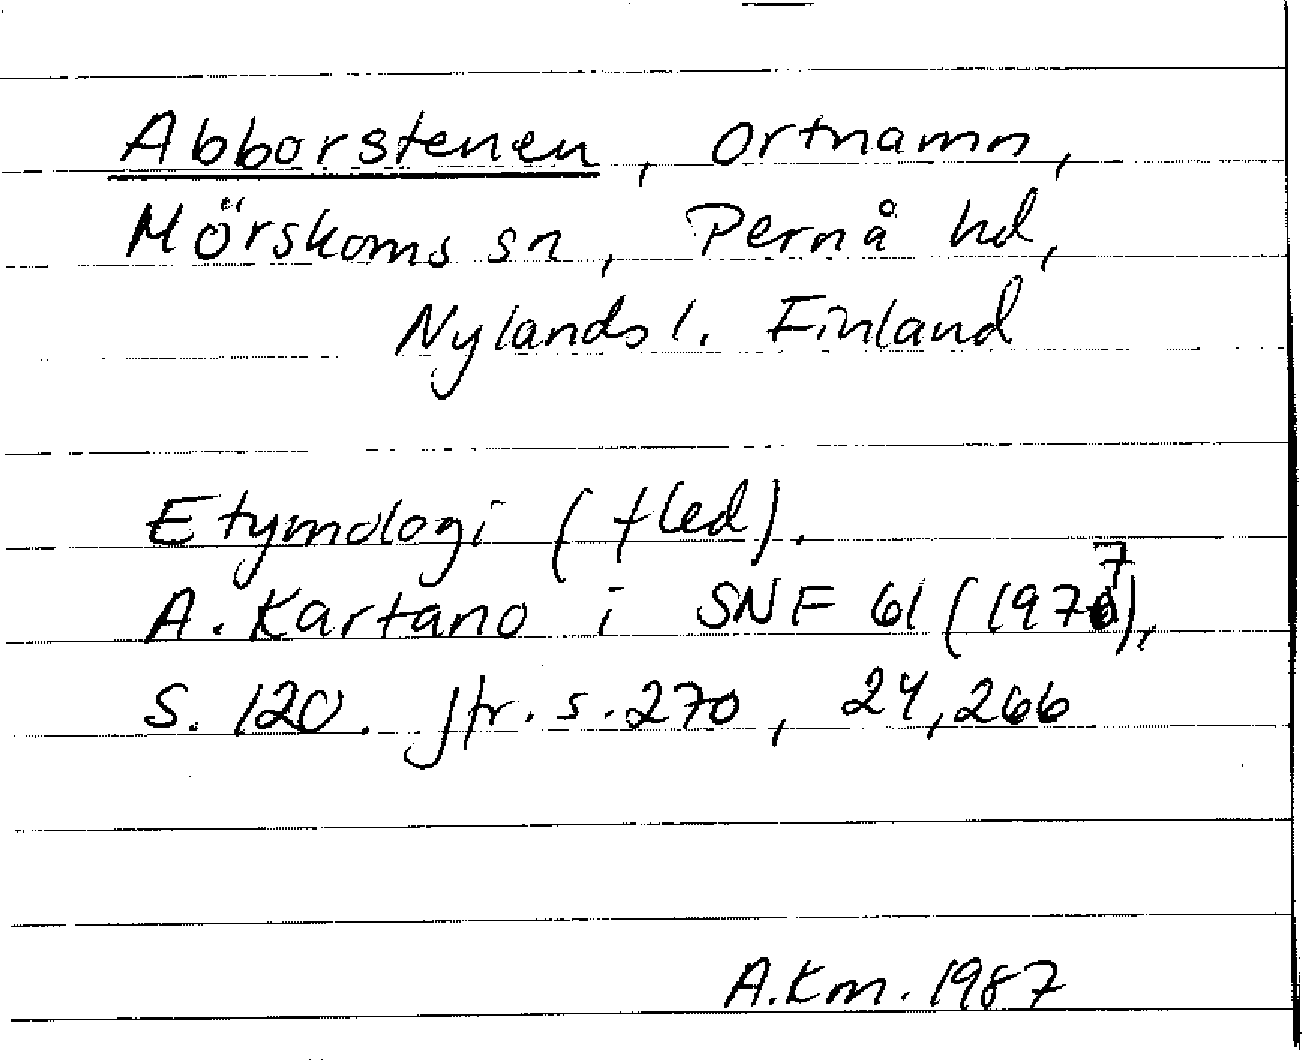 Abborstenen, ortnamn,
Mörskoms sn, Pernå hd,
Nylands l. Finland
Etymologi (fled).
A. Kartano i SNF 61 (1977),
S. 120. Jfr. s. 270, 24, 266
A.Km. 1987